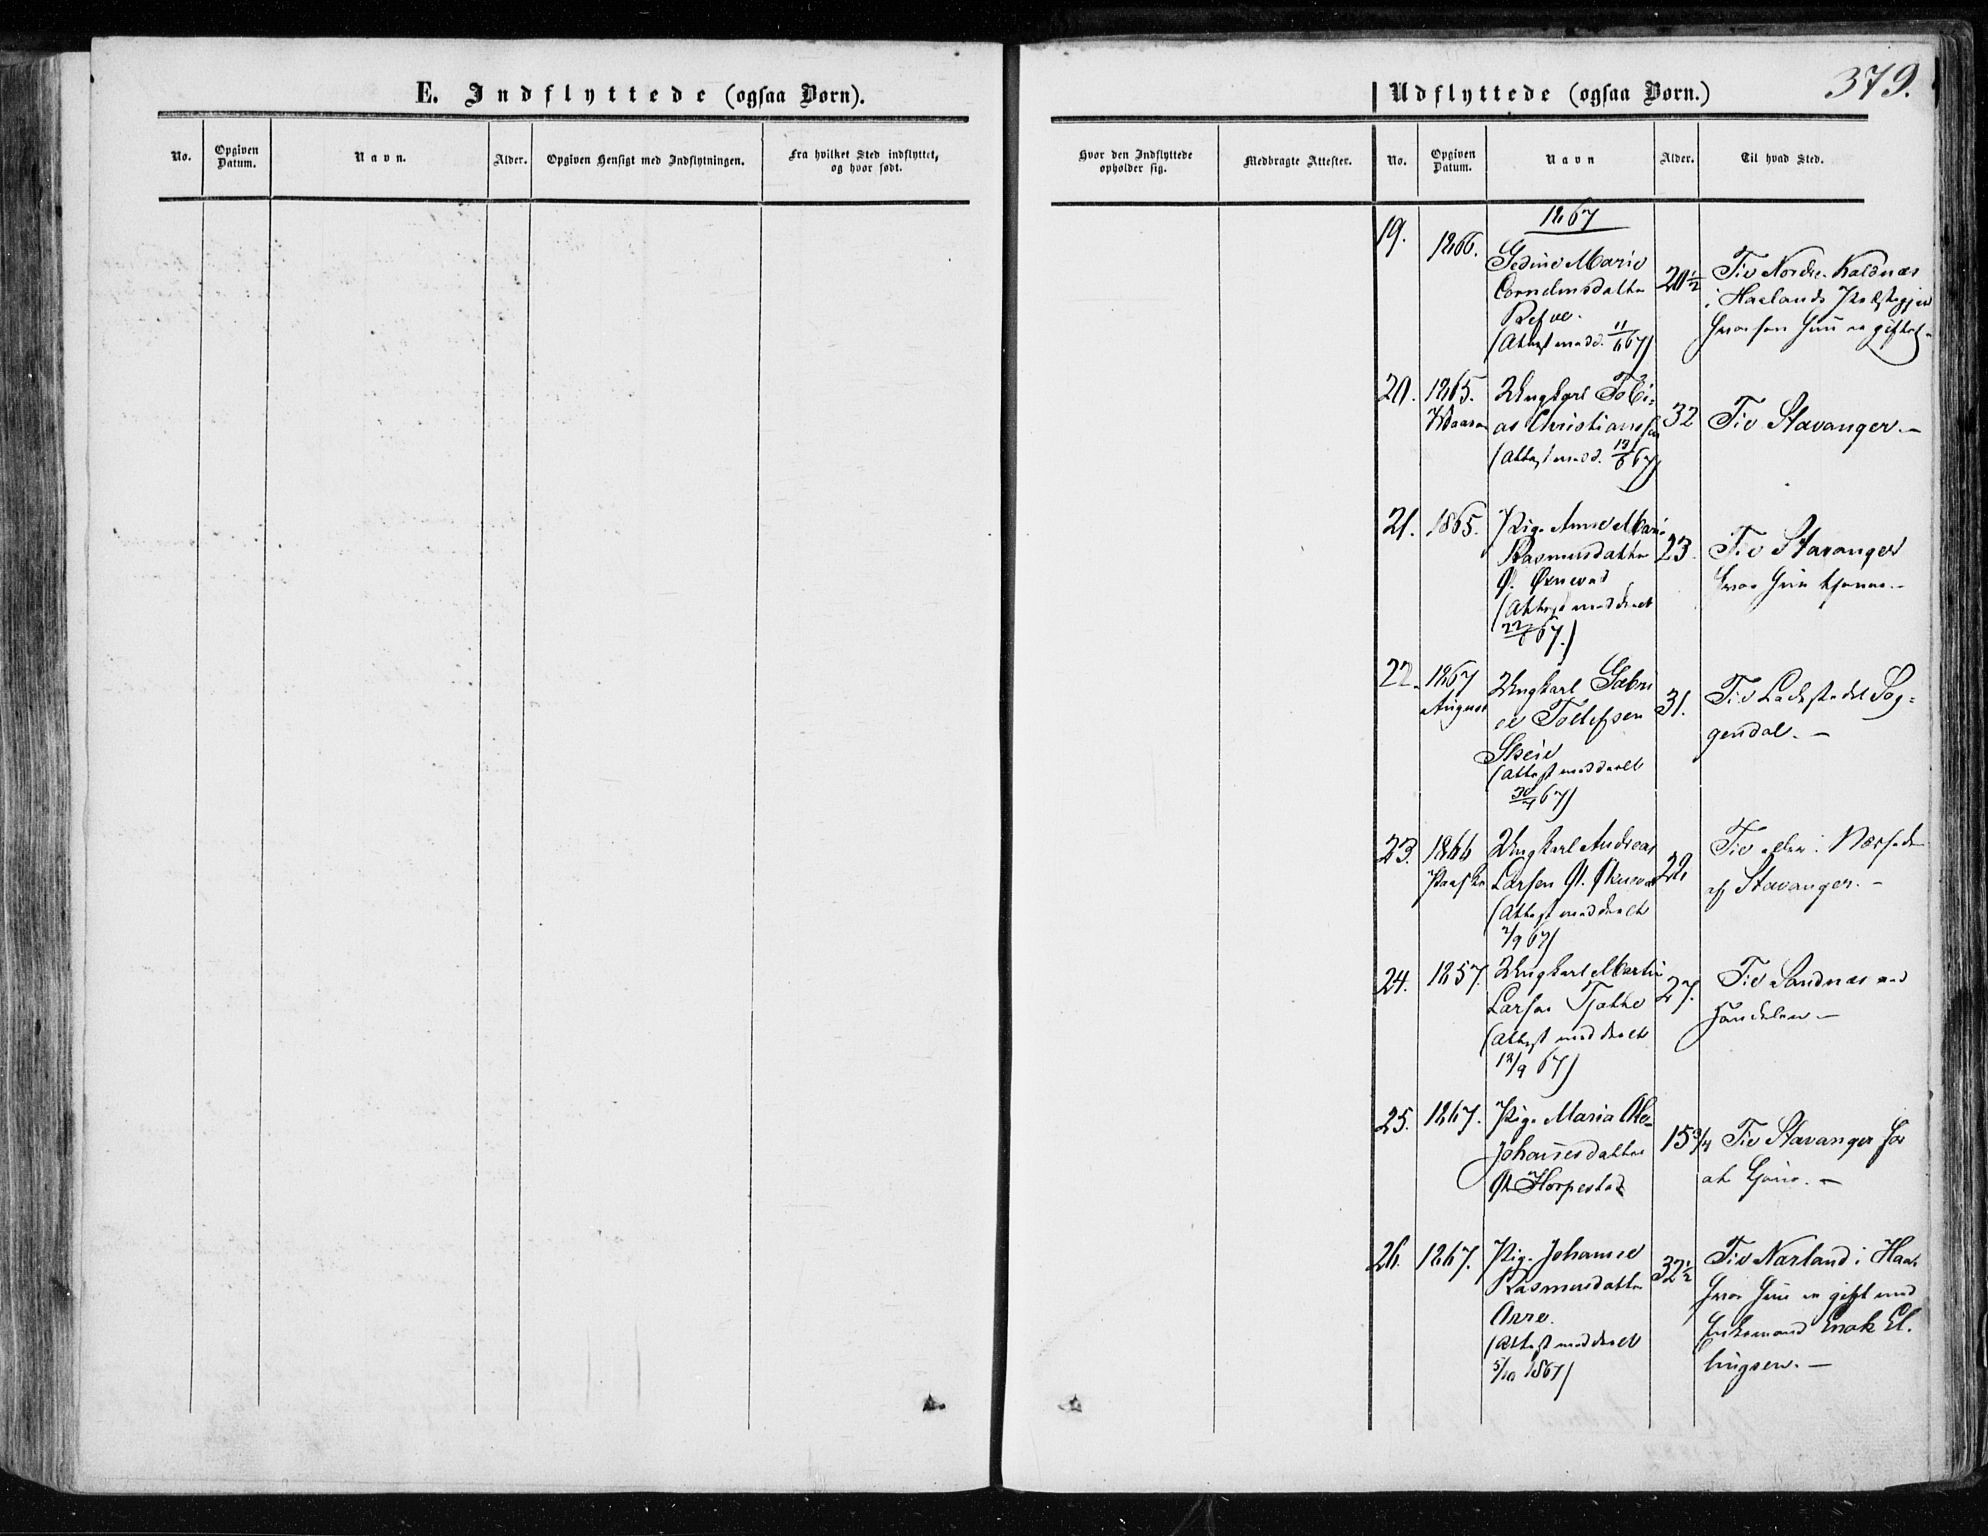 379.
E. Indflyttede (ogsaa Børn).
Udflyttede (ogsaa Børn.)
No.
Opgiven Datum.
Navn.
Alder.
Opgiven Hensigt med Indflytningen.
Fra hvilket Sted indflyttet, og hvor født.
Hvor den Indflyttede opholder sig.
Medbragte Attester.
No.
Opgiven Datum.
Navn
Alder.
Til hvad Sted.
1867
19. 1866.
Gedine Marie
Corneliusdatter
Refve.
(Attest medd. 11/6 67)
20½
Til Nordre Kaldnæs
i Haalands Præstegjeld
hvor hun er giftet
20. 1865.
Ungkarl Tobi-
as Christiansen
(Attest medd. 67)
32
Til Stavanger. —
21. 1865.
Pige Anne Marie
Rasmusdatter
Øxnevad
(Attest meddeelt
22/6 67.)
23.
Til Stavanger
hvor hun tjener. —
22. 1867
August
Ungkarl Gabri
el Tollefsen
Skeie
(Attest meddeelt
67)
31.
Til Ladestedet Sog-
gendal. —
23. 1866
Paaske
Ungkarl Andreas
Larsen
(Attest meddeelt
2/9 67)
Til eller i Nærheden
af Stavanger. —
24. 1857.
Ungkarl Martin
Larsen Tjøtte
(Attest meddeelt
12/9 67)
27.
Til Sandnæs ved
Handelen —
25. 1867.
Pige Maria
Johannesdatter
Horpestad
15¾
Til Stavanger for
at tjene. —
26. 1867.
Pige Johanne
Rasmusdatter
Anre.
(Attest meddeelt
5/10 1867)
32½
Til Nærland i Haa
hvor hun er gift med
Enkemand Enok El-
lingsen. —